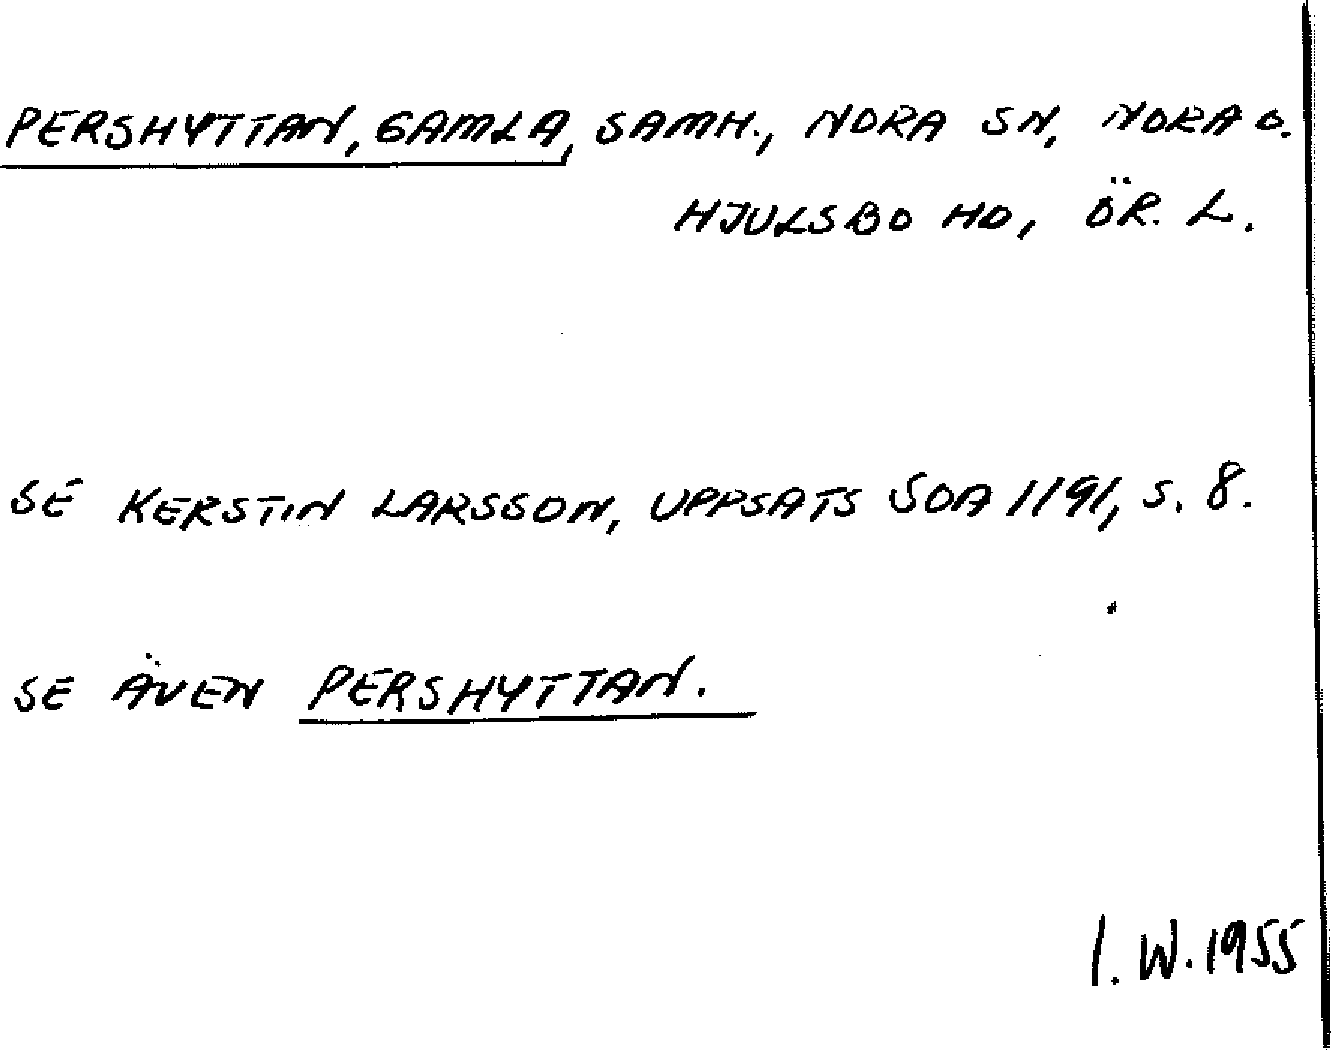 PERSHYTTAN, GAMLA, SAMH., NORA SN, NORA O.
HJULSBO HD, ÖR. L.
SE KERSTIN LARSSON, UPPSATS SOA 1191, S. 8.
SE ÄVEN PERSHYTTAN.
I. W. 1955